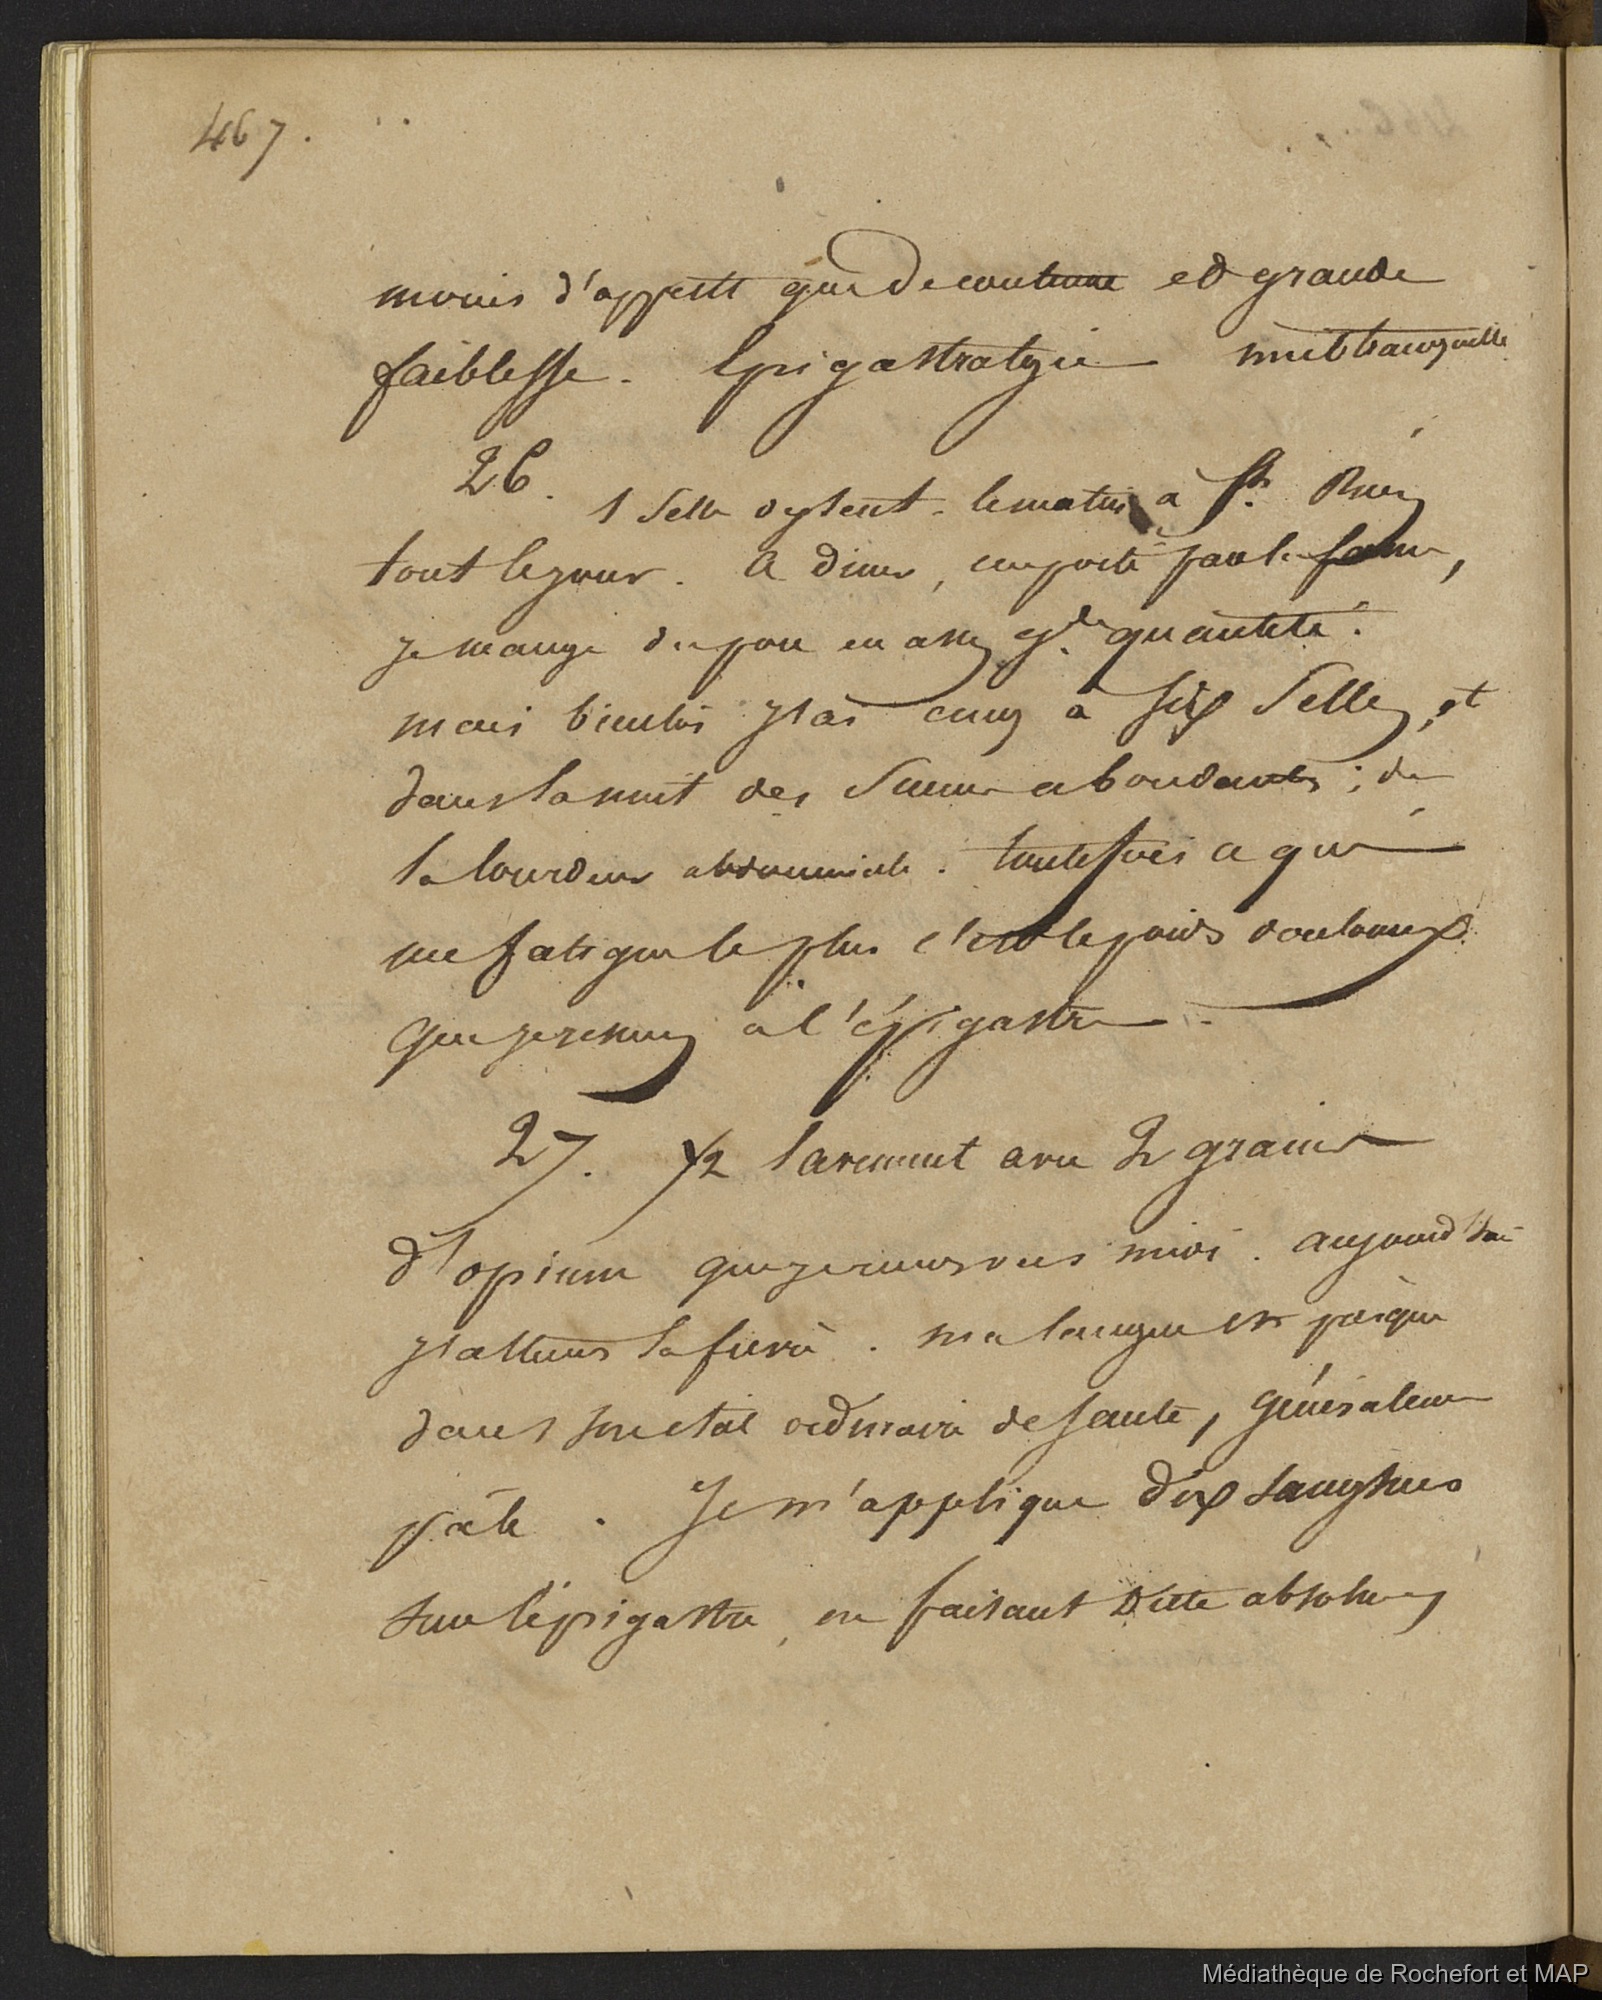 467.
moins d'appetit que de coutume et grande
faiblesse. Epigastralgie nuit tranquille
26. 1 selle dyssent. le matin à Rien
tout le jour. A diner, emporté par la faim,
je mange du en assez gde quantité.
mais bientôt j'ai cinq à six selles, et
dans la nuit des sueurs abondantes ; de
la lourdeur abdominale. toutefois ce qui
me fatigue le plus c'est le poids douloureux
que je ressens à l'épigastre.
27. 1/2 lavement avec 2 grains
d'opium que je rends vers midi. aujourd'hui
j'attends la fièvre. ma langue est presque
dans son état ordinaire de santé, généralem
pâle. Je m'applique dix sangsues
sur l'épigastre, en faisant diette absolue,
Médiathèque de Rochefort et MAP